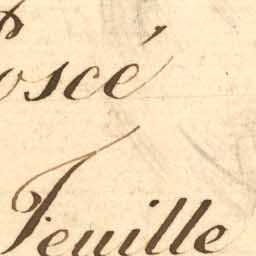 Poscé
Feuille